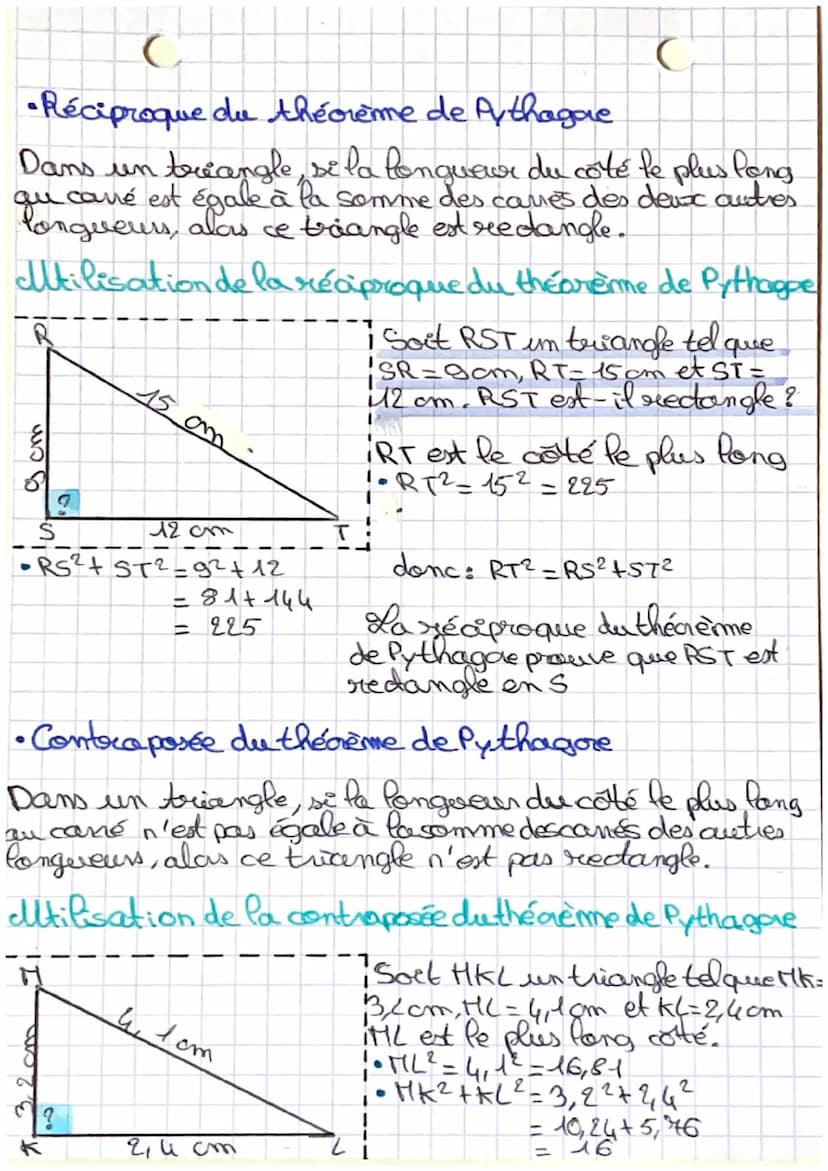 • Réciproque du théorème de Pythagore
Dans un triangle, si la longueur du côté le plus long
au carré est égale à la somme des carrés des deux autres
longueurs, alors ce triangle est rectangle.
Utilisation de la réciproque du théorème de Pythagore
R
15 cm
9 cm
?
S
12 cm
T
Soit RST un triangle tel que
SR = 9cm, RT = 15 cm et ST =
12 cm. RST est-il rectangle ?
RT est le côté le plus long
• RT² = 15² = 225
• RS² + ST² = 9² + 12
= 81 + 144
= 225
donc : RT² = RS² + ST²
La réciproque du théorème
de Pythagore prouve que RST est
rectangle en S
• Contraposée du théorème de Pythagore
Dans un triangle, si la longueur du côté le plus long
au carré n'est pas égale à la somme des carrés des autres
longueurs, alors ce triangle n'est pas rectangle.
Utilisation de la contraposée du théorème de Pythagore
M
4,1 cm
3,2 cm
?
K
2,4 cm
L
Soit MKL un triangle tel que MK=
3,2cm, ML = 4,1cm et KL=2,4cm
ML est le plus long côté.
• ML² = 4,1² = 16,81
• MK² + KL² = 3,2² + 2,4²
= 10,24 + 5,76
= 16